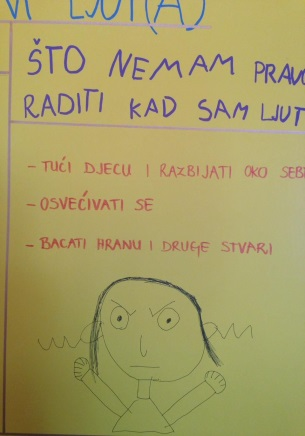 LJUT(A)
ŠTO NEMAM PRAVO
RADITI KAD SAM LJUT
- TUĆI DJECU I RAZBIJATI OKO SEB
- OSVEĆIVATI SE
- BACATI HRANU I DRUGE STVARI